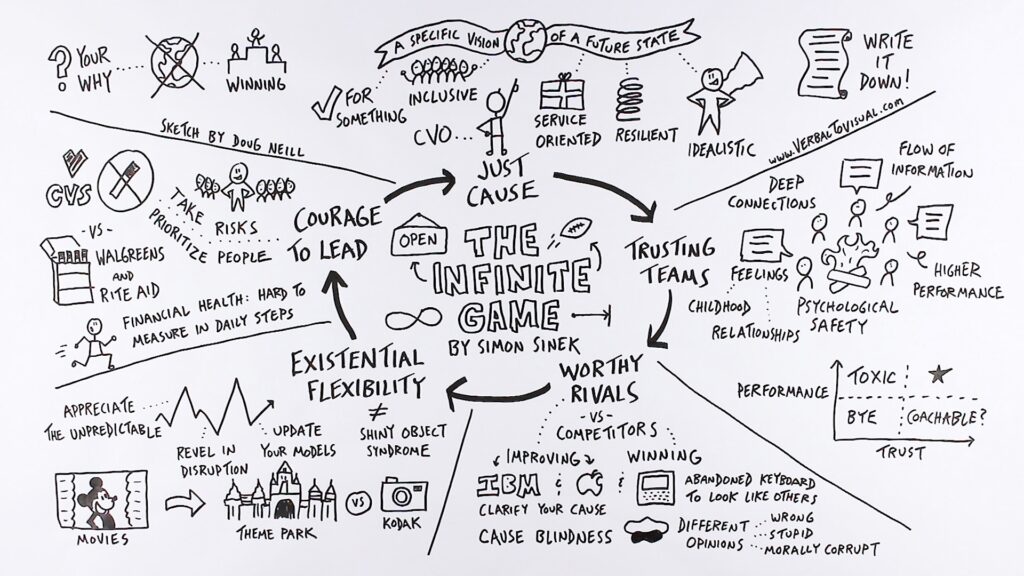 THE
INFINITE
GAME
BY SIMON SINEK
OPEN
A SPECIFIC VISION OF A FUTURE STATE
FOR
SOMETHING
INCLUSIVE
CVO...
SERVICE
ORIENTED
RESILIENT
IDEALISTIC
JUST
CAUSE
WRITE
IT
DOWN!
www.VERBALTOVISUAL.com
? YOUR
WHY
WINNING
SKETCH BY DOUG NEILL
TRUSTING
TEAMS
DEEP
CONNECTIONS
FLOW OF
INFORMATION
FEELINGS
CHILDHOOD
RELATIONSHIPS
HIGHER
PERFORMANCE
PSYCHOLOGICAL
SAFETY
PERFORMANCE
TOXIC
BYE
COACHABLE?
TRUST
WORTHY
RIVALS
-VS-
COMPETITORS
IMPROVING
WINNING
IBM
CLARIFY YOUR CAUSE
ABANDONED KEYBOARD
TO LOOK LIKE OTHERS
CAUSE BLINDNESS
DIFFERENT
OPINIONS
WRONG
STUPID
MORALLY CORRUPT
EXISTENTIAL
FLEXIBILITY
≠
SHINY OBJECT
SYNDROME
APPRECIATE
THE UNPREDICTABLE
REVEL IN
DISRUPTION
UPDATE
YOUR MODELS
MOVIES
THEME PARK
VS
KODAK
COURAGE
TO LEAD
TAKE
RISKS
PRIORITIZE
PEOPLE
CVS
-VS-
WALGREENS
AND
RITE AID
FINANCIAL HEALTH: HARD TO
MEASURE IN DAILY STEPS